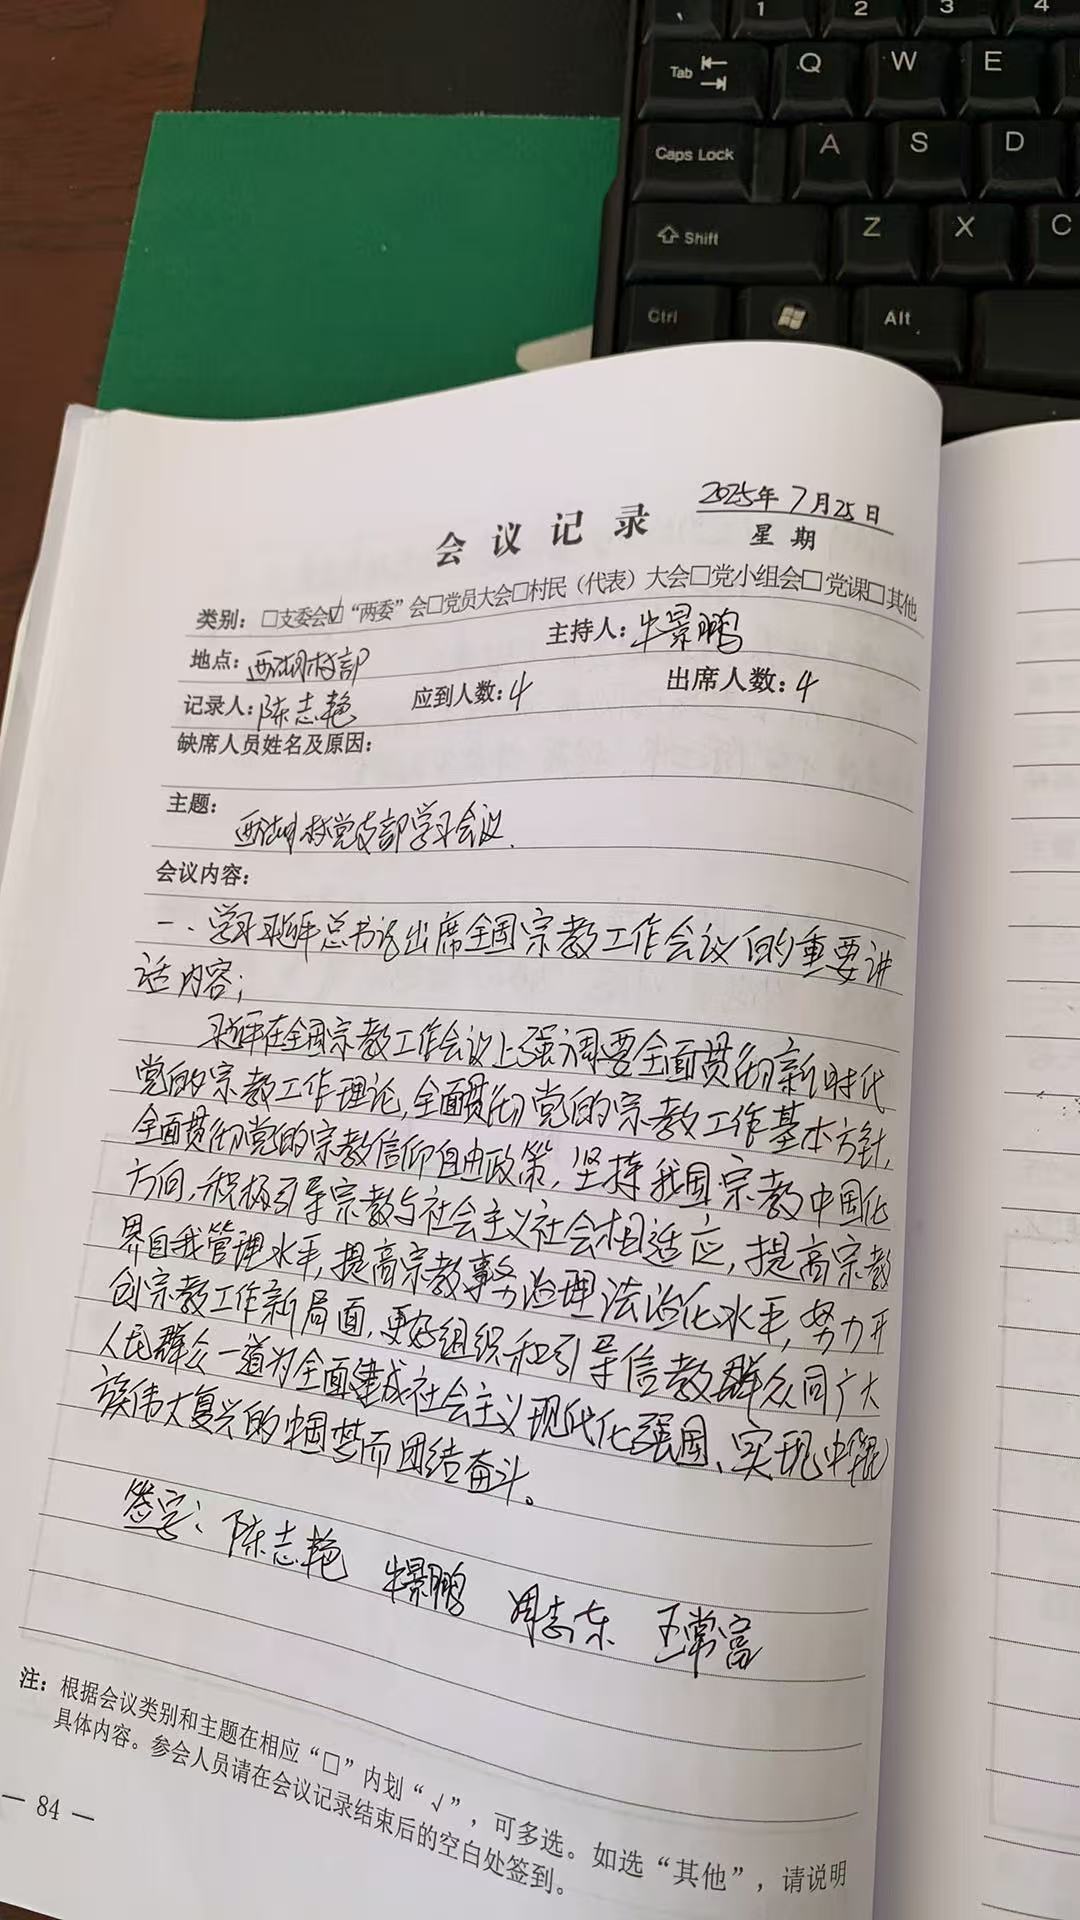 ` 1 2 3 4
Tab Q W E
Caps Lock A S D
Shift Z X C
Ctrl Alt
2025年7月25日
会议记录
星期
类别：□支委会☑“两委”会□党员大会□村民（代表）大会□党小组会□党课□其他
地点：西湖村部 主持人：牛景鹏
记录人：陈志艳 应到人数：4 出席人数：4
缺席人员姓名及原因：
主题：
西湖村党支部学习会议.
会议内容：
一、学习习近平总书记出席全国宗教工作会议的重要讲
话内容；
习近平在全国宗教工作会议上强调要全面贯彻新时代
党的宗教工作理论,全面贯彻党的宗教工作基本方针,
全面贯彻党的宗教信仰自由政策,坚持我国宗教中国化
方向,积极引导宗教与社会主义社会相适应,提高宗教
界自我管理水平,提高宗教事务治理法治化水平,努力开
创宗教工作新局面,更好组织和引导信教群众同广大
人民群众一道为全面建成社会主义现代化强国、实现中华民
族伟大复兴的中国梦而团结奋斗。
签字：陈志艳 牛景鹏 周志东 王常富
注：根据会议类别和主题在相应“□”内划“√”，可多选。如选“其他”，请说明
具体内容。参会人员请在会议记录结束后的空白处签到。
— 84 —